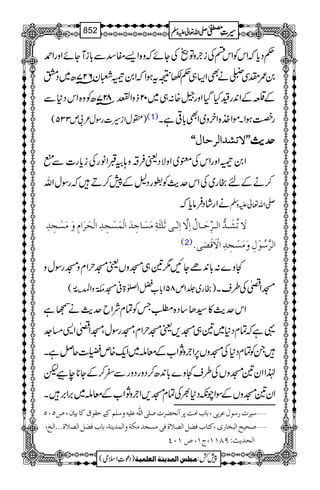 سیرتِ مصطفیٰ صلی اللہ تعالیٰ علیہ وسلم 852
حکم دیا کہ اس کو اس قسم کی زجر و توبیخ کی جائے کہ وہ ایسے مفاسد سے باز آ جائے اور احمد
بن عمر مقدسی حنبلی نے بھی ایسا ہی حکم لکھا نتیجہ یہ ہوا کہ ابن تیمیہ شعبان ۷۲۶ھ میں دمشق
کے قلعہ کے اندر قید کیا گیا اور جیل خانہ ہی میں ۲۰ ذوالقعدہ ۷۲۸ھ کو وہ اس دنیا سے
رخصت ہوا۔ مواخذۂ اخروی ابھی باقی ہے۔(1) (منقول از سیرت رسول عربی ص ۵۳۳)
حدیث ’’لا تشد الرحال‘‘
ابن تیمیہ اور اس کی معنوی اولاد یعنی فرقہ وہابیہ قبر انور کی زیارت سے منع
کرنے کے لئے بخاری کی اس حدیث کو بطور دلیل کے پیش کرتے ہیں کہ رسول اللہ
صلی اللہ تعالیٰ علیہ وسلم نے ارشاد فرمایا کہ
لَا تُشَدُّ الرِّحَالُ اِلَّا اِلٰی ثَلٰثَۃِ مَسَاجِدَ الْمَسْجِدِ الْحَرَامِ وَ مَسْجِدِ
الرَّسُوْلِ وَمَسْجِدِ الْاَقْصٰی.(2)
کجاوے نہ باندھے جائیں مگر تین ہی مسجدوں یعنی مسجد حرام و مسجد رسول و
مسجد اقصیٰ کی طرف۔ (بخاری جلد۱ ص ۱۵۸ باب فضل الصلوٰۃ فی مسجد مکۃ والمدینۃ)
اس حدیث کا سیدھا سادہ مطلب جس کو تمام شراح حدیث نے سمجھا ہے
یہی ہے کہ تمام دنیا میں تین ہی مسجدیں یعنی مسجد حرام، مسجد رسول، مسجد اقصیٰ ایسی مساجد
ہیں جن کو تمام دنیا کی مسجدوں پر اجر و ثواب کے معاملہ میں ایک خاص فضیلت حاصل ہے۔
لہٰذا ان تین مسجدوں کی طرف کجاوے باندھ کر دور دور سے سفر کر کے جانا چاہیے لیکن
ان تین مسجدوں کے سوا چونکہ دنیا بھر کی تمام مسجدیں اجر و ثواب کے معاملہ میں برابر ہیں۔
سیرت رسول عربی، باب امت پر آنحضرت صلی اللہ علیہ وسلم کے حقوق کا بیان، ص۵۰۵
صحیح البخاری، کتاب فضل الصلاۃ فی مسجد مکۃ والمدینۃ، باب فضل الصلاۃ...الخ،
الحدیث: ۱۱۸۹، ج۱، ص ۴۰۱
پیش کش: مجلس المدینۃ العلمیۃ (دعوت اسلامی)